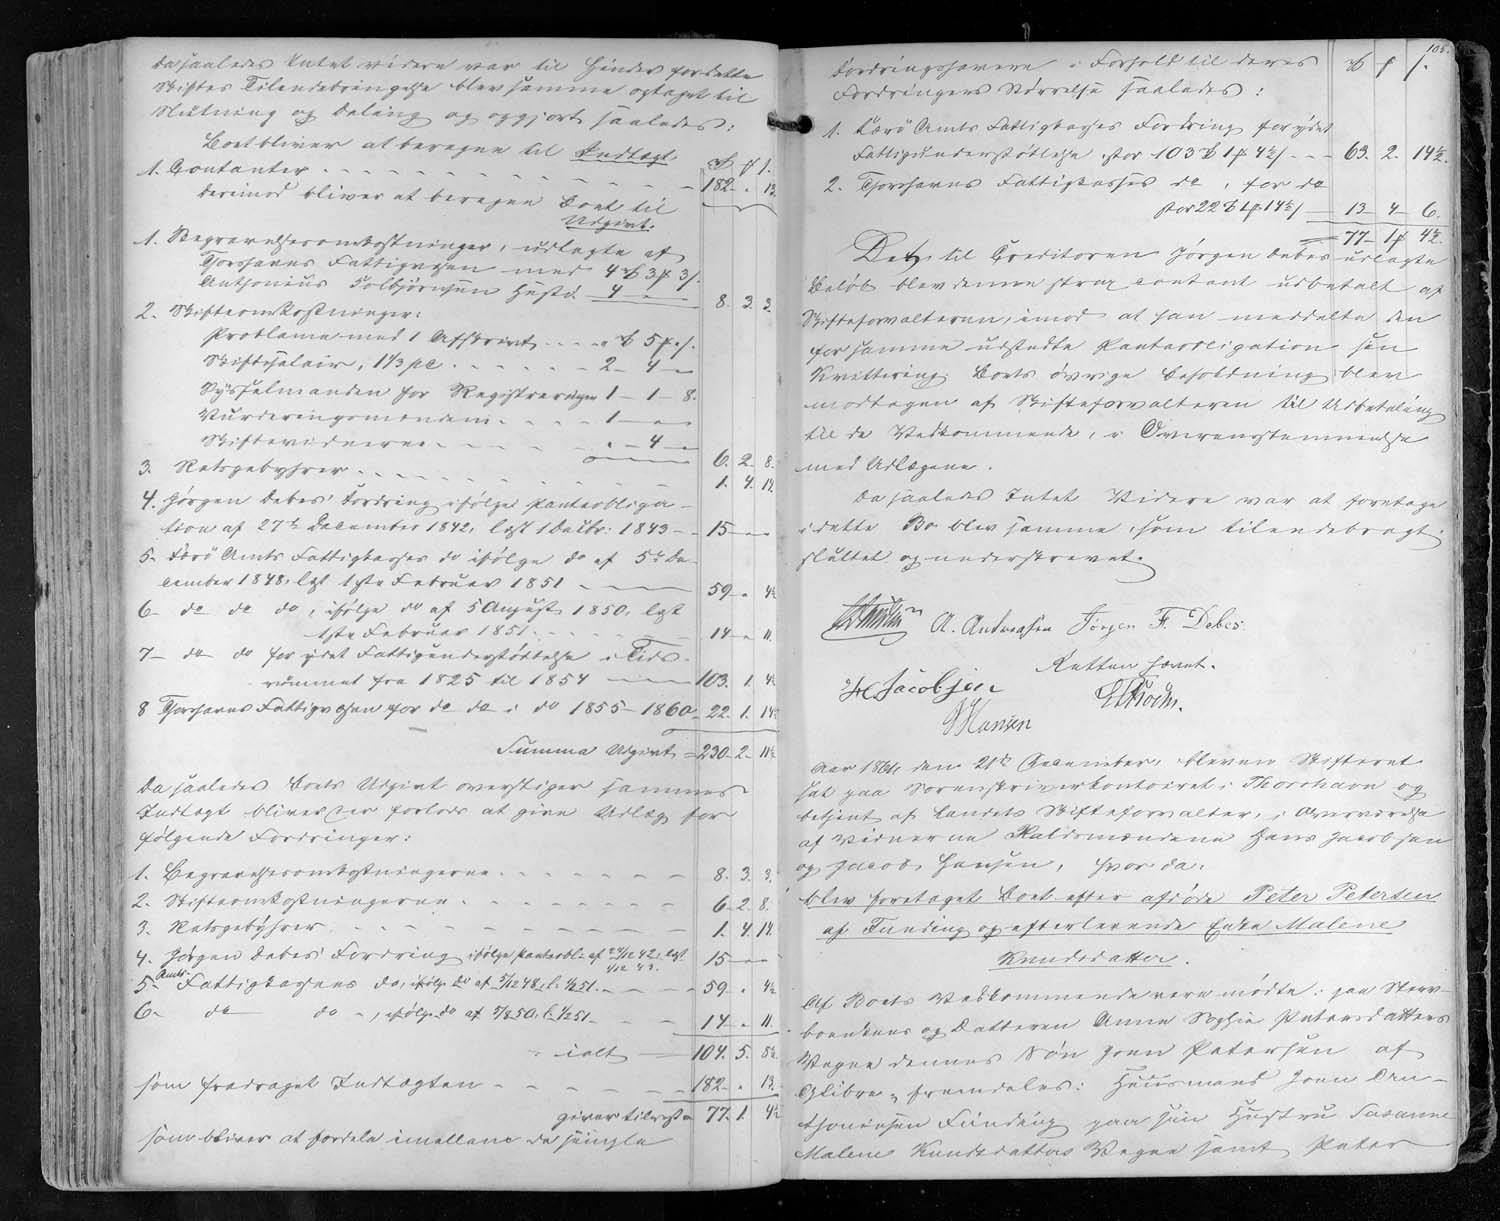 da saaledes Intet videre var til Hinder for dette
Skiftes Tilendebringelse blev samme optaget til
Slutning og Deling og opgjort saaledes:
Boet bliver at beregne til Indtægt
1. Contanter - - - 182 - " 13.
derimod bliver at beregne Boet til
Udgivt.
1. Begravelsesomkostninger, udlagte af
Thorshavns Fattigvæsen med 4 rd 3 f 3 s.
Anthonius Tolbjörnsen Husta 4 - "
8. 3. 3.
2. Skifteomkostninger:
Proclama med 1 Afskrivt - - - " rd 5 f " s.
Skiftesalair, 1 1/3 pc - - - 2 - 4 - "
Sysselmanden for Registreringen 1 - 1 - 8.
Vurderingsmændene - - - 1 - " - "
Skiftevidnerne - - - " - 4 - "
6. 2. 8.
3. Retsgebyhrer - - - 1. 4. 14.
4. Jørgen Debes' Fordring ifølge Panteobliga-
tion af 27de December 1842, læst 1 Decbr: 1843 - 15 - " "
5. Færö Amts Fattigkasses do ifølge do af 5te De-
cember 1848, læst 1ste Februar 1851 - 59. " 4½
6 - do do do, ifølge do af 5 August 1850, læst
1ste Februar 1851. - - - 14 - " 11.
7 - do do for ydet Fattigunderstøttelse i Tids-
rummet fra 1825 til 1854 - 103. 1. 4½
8 Thorshavns Fattigvæsen for do do i do 1855 - 1860 - 22. 1. 14½
Summa Udgivt = 230 - 2 - 11½
Da saaledes Boets Udgivt overstiger sammes
Indtægt bliver er forlods at give Udlæg for
følgende Fordringer:
1. Begravelsesomkostningerne - - - 8. 3. 3.
2. Skifteomkostningerne - - - 6 - 2. 8.
3. Retsgebyhrer - - - 1. 4. 14.
4. Jørgen Debes' Fordring ifølge Panteobl. af 27/12 42, læst 1/12 43. 15 - "
5. Amts Fattigkassens do, ifølge do af 5/12 48, l. 1/2 51. - - - 59. " 4½
6. do do -, ifølge do af 5/8 50, l. 1/2 51 - - - 14 - " 11.
ialt - 104. 5. 8½
som fradraget Indtægten - - - 182 - " 13.
giver tilrest = 77. 1. 4½
som bliver at fordele imellem de simple
108.
Fordringshavere i Forhold til deres rd f s.
Fordringers Størrelse saaledes:
1. Færö Amts Fattigkasses Fordring for ydet
Fattigunderstøttelse stor 103 rd 1 f 4½ s - - 63. 2. 14½.
2. Thorshavns Fattigkasses do, for do
stor 22 rd 1 f 14½ s - 13 - 4 - 6.
77 - 1 f 4½.
Det til Creditoren Jørgen Debes udlagte
Beløb blev denne strax contant udbetalt af
Skifteforvalteren, imod at han meddelte den
for samme udstedte Panteobligation sin
Kvittering. Boets øvrige Beholdning blev
modtagen af Skifteforvalteren til Udbetaling
til de Vedkommende, i Overensstemmelse
med Udlægene.
Da saaledes Intet Videre var at foretage
i dette Bo blev samme, som tilendebragt
sluttet og underskrevet.
A. Andreasen Jørgen F. Debes.
Retten hævet.
H Jacobsen
J Hansen
Aar 1861, den 21de December, blev en Skifteret
sat paa Sorenskriverkontoiret i Thorshavn og
betjent af Landets Skifteforvalter, i Overværelse
af Vidnerne Raldsmændene Hans Jacobsen
og Jacob Hansen, hvor da:
blev foretaget Boet efter afdøde Peter Petersen
af Funding og efterlevende Enke Malene
Knudsdatter.
Af Boets Vedkommende vare mødte: paa Sterv-
boenkens og Datteren Anna Sophie Petersdatters
Vegne dennes Søn Joen Petersen af
Glibre, fremdeles: Huusmand Joen An-
thonisen Funding paa sin Hustru Susanne
Malene Knudsdatters Vegne samt Peter